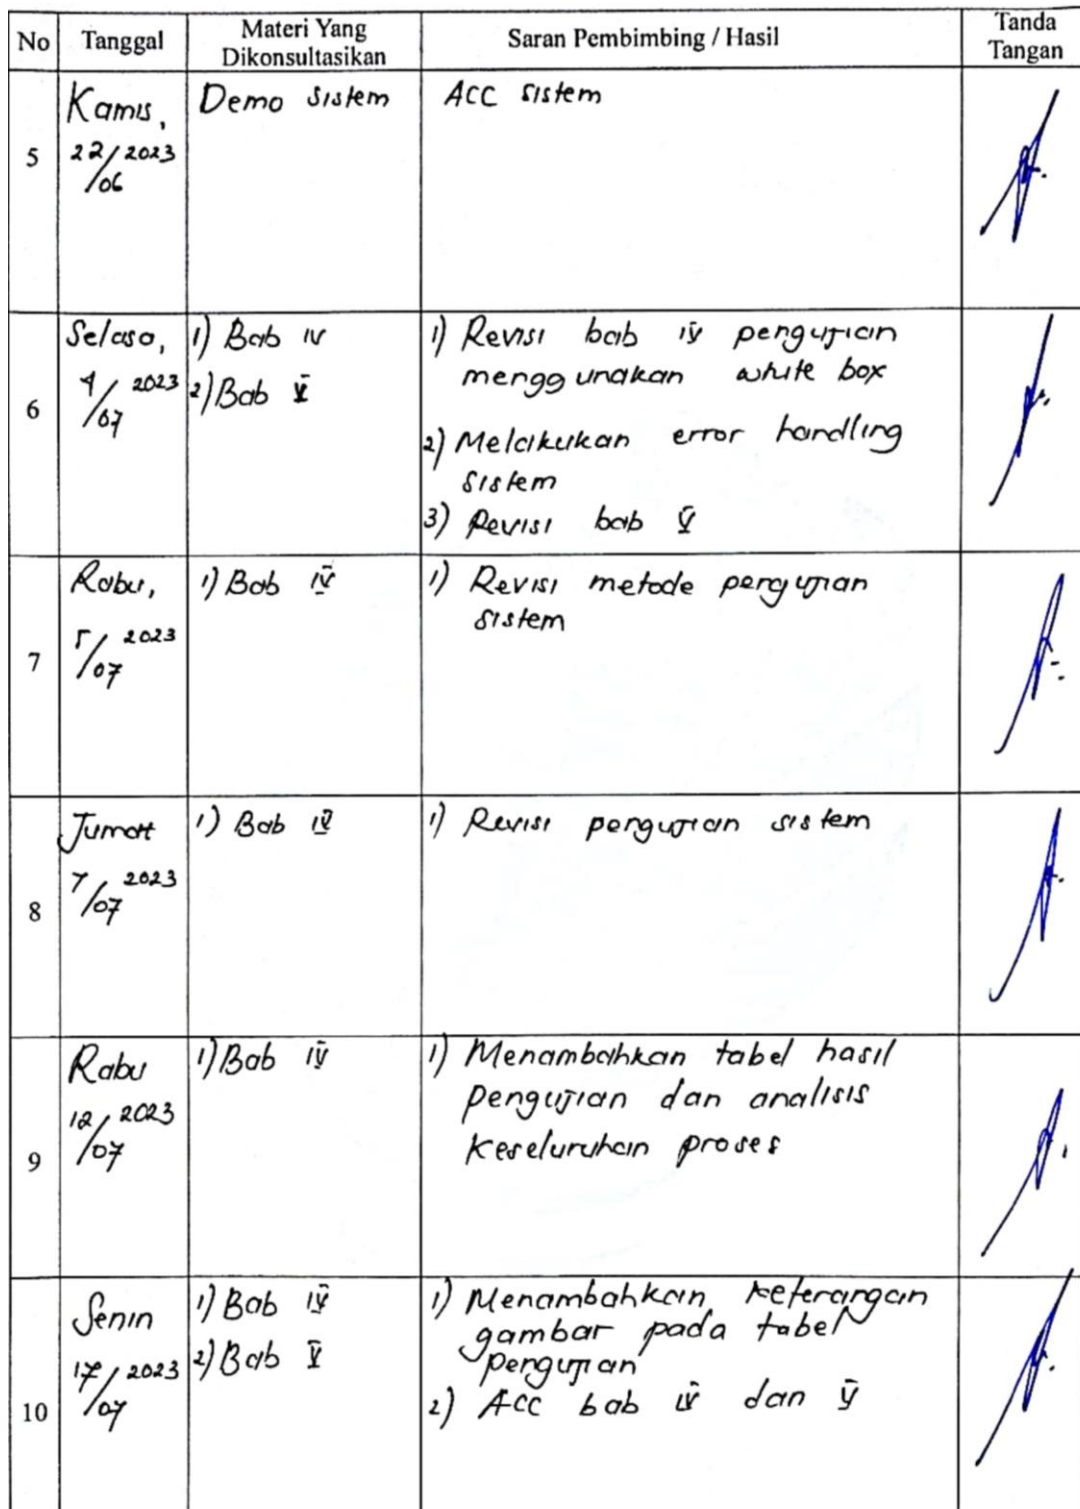 No Tanggal Materi Yang Dikonsultasikan Saran Pembimbing / Hasil Tanda Tangan
5
Kamis,
22/06 2023
Demo sistem
ACC sistem
6
Selasa,
4/07 2023
1) Bab IV
2) Bab V
1) Revisi bab IV pengujian
menggunakan white box
2) Melakukan error handling
sistem
3) Revisi bab V
7
Rabu,
5/07 2023
1) Bab IV
1) Revisi metode pengujian
sistem
8
Jumat
7/07 2023
1) Bab IV
1) Revisi pengujian sistem
9
Rabu
12/07 2023
1) Bab IV
1) Menambahkan tabel hasil
pengujian dan analisis
keseluruhan proses
10
Senin
17/07 2023
1) Bab IV
2) Bab V
1) Menambahkan keterangan
gambar pada tabel
pengujian
2) ACC bab IV dan V